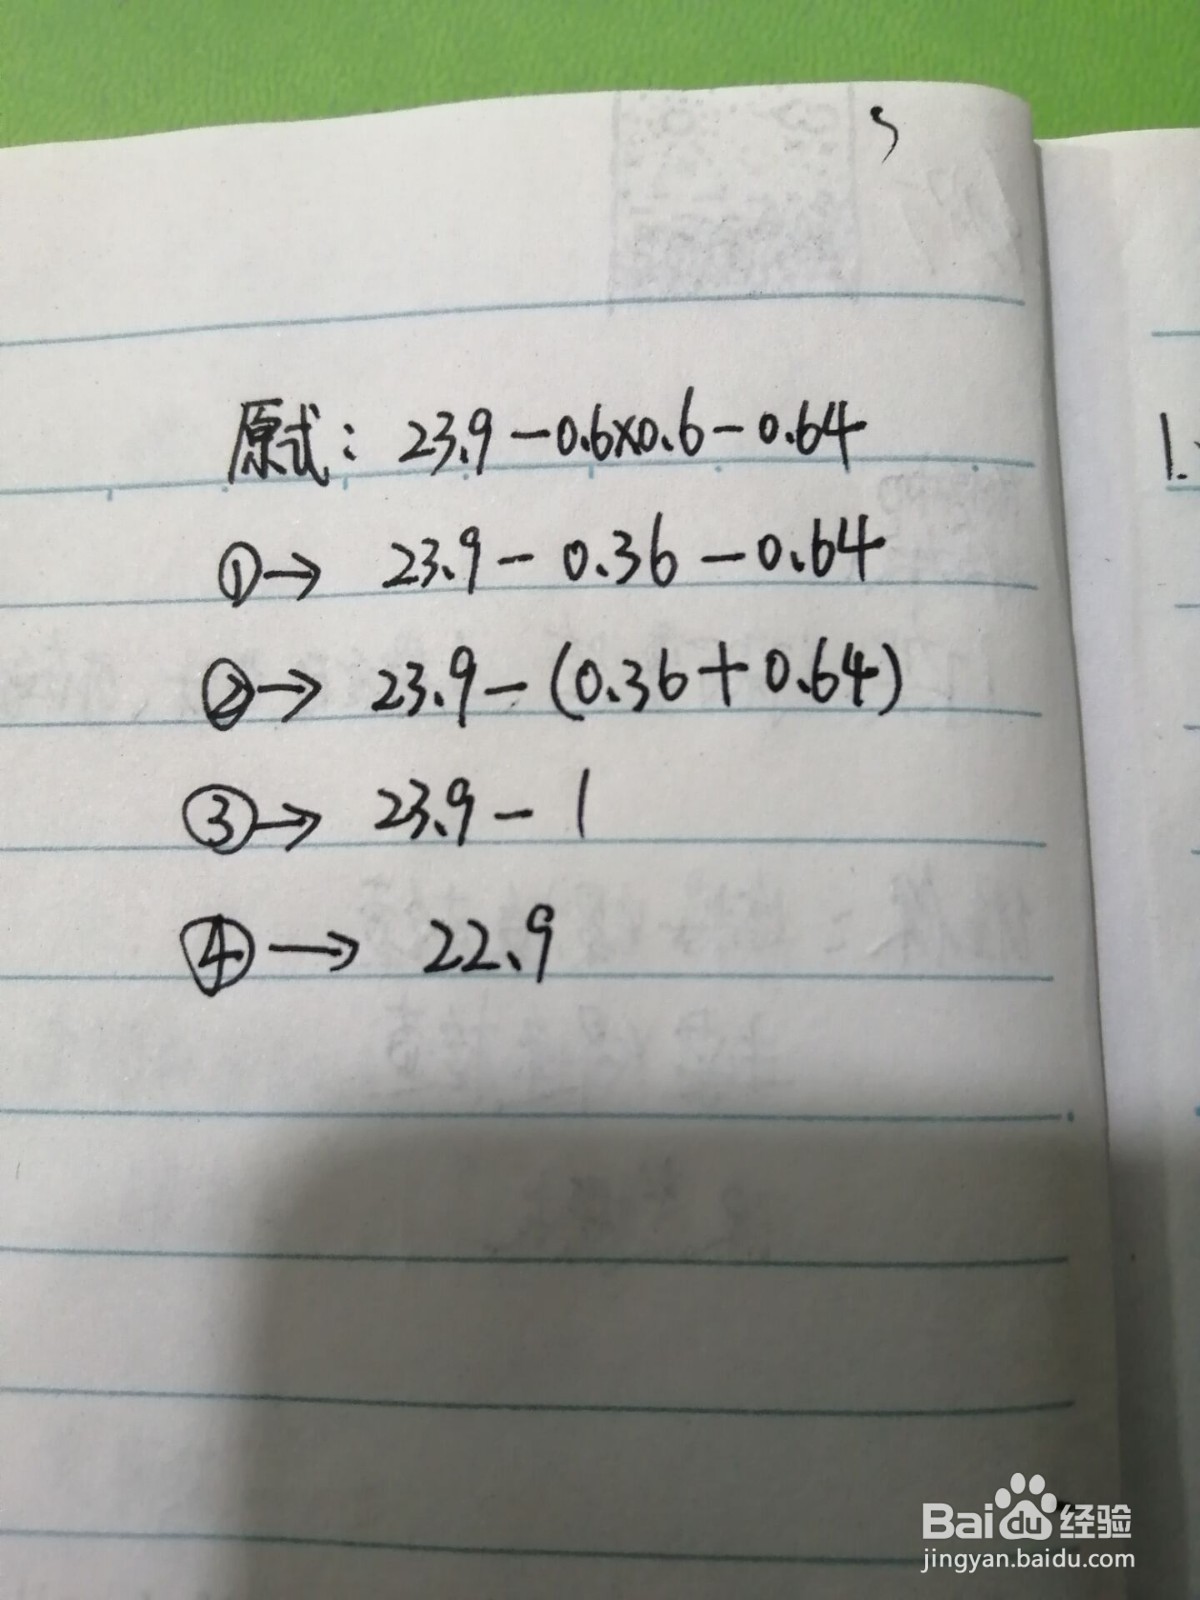 原式: 23.9-0.6×0.6-0.64
①→ 23.9-0.36-0.64
②→ 23.9-(0.36+0.64)
③→ 23.9-1
④→ 22.9
1.
Baidu经验
jingyan.baidu.com